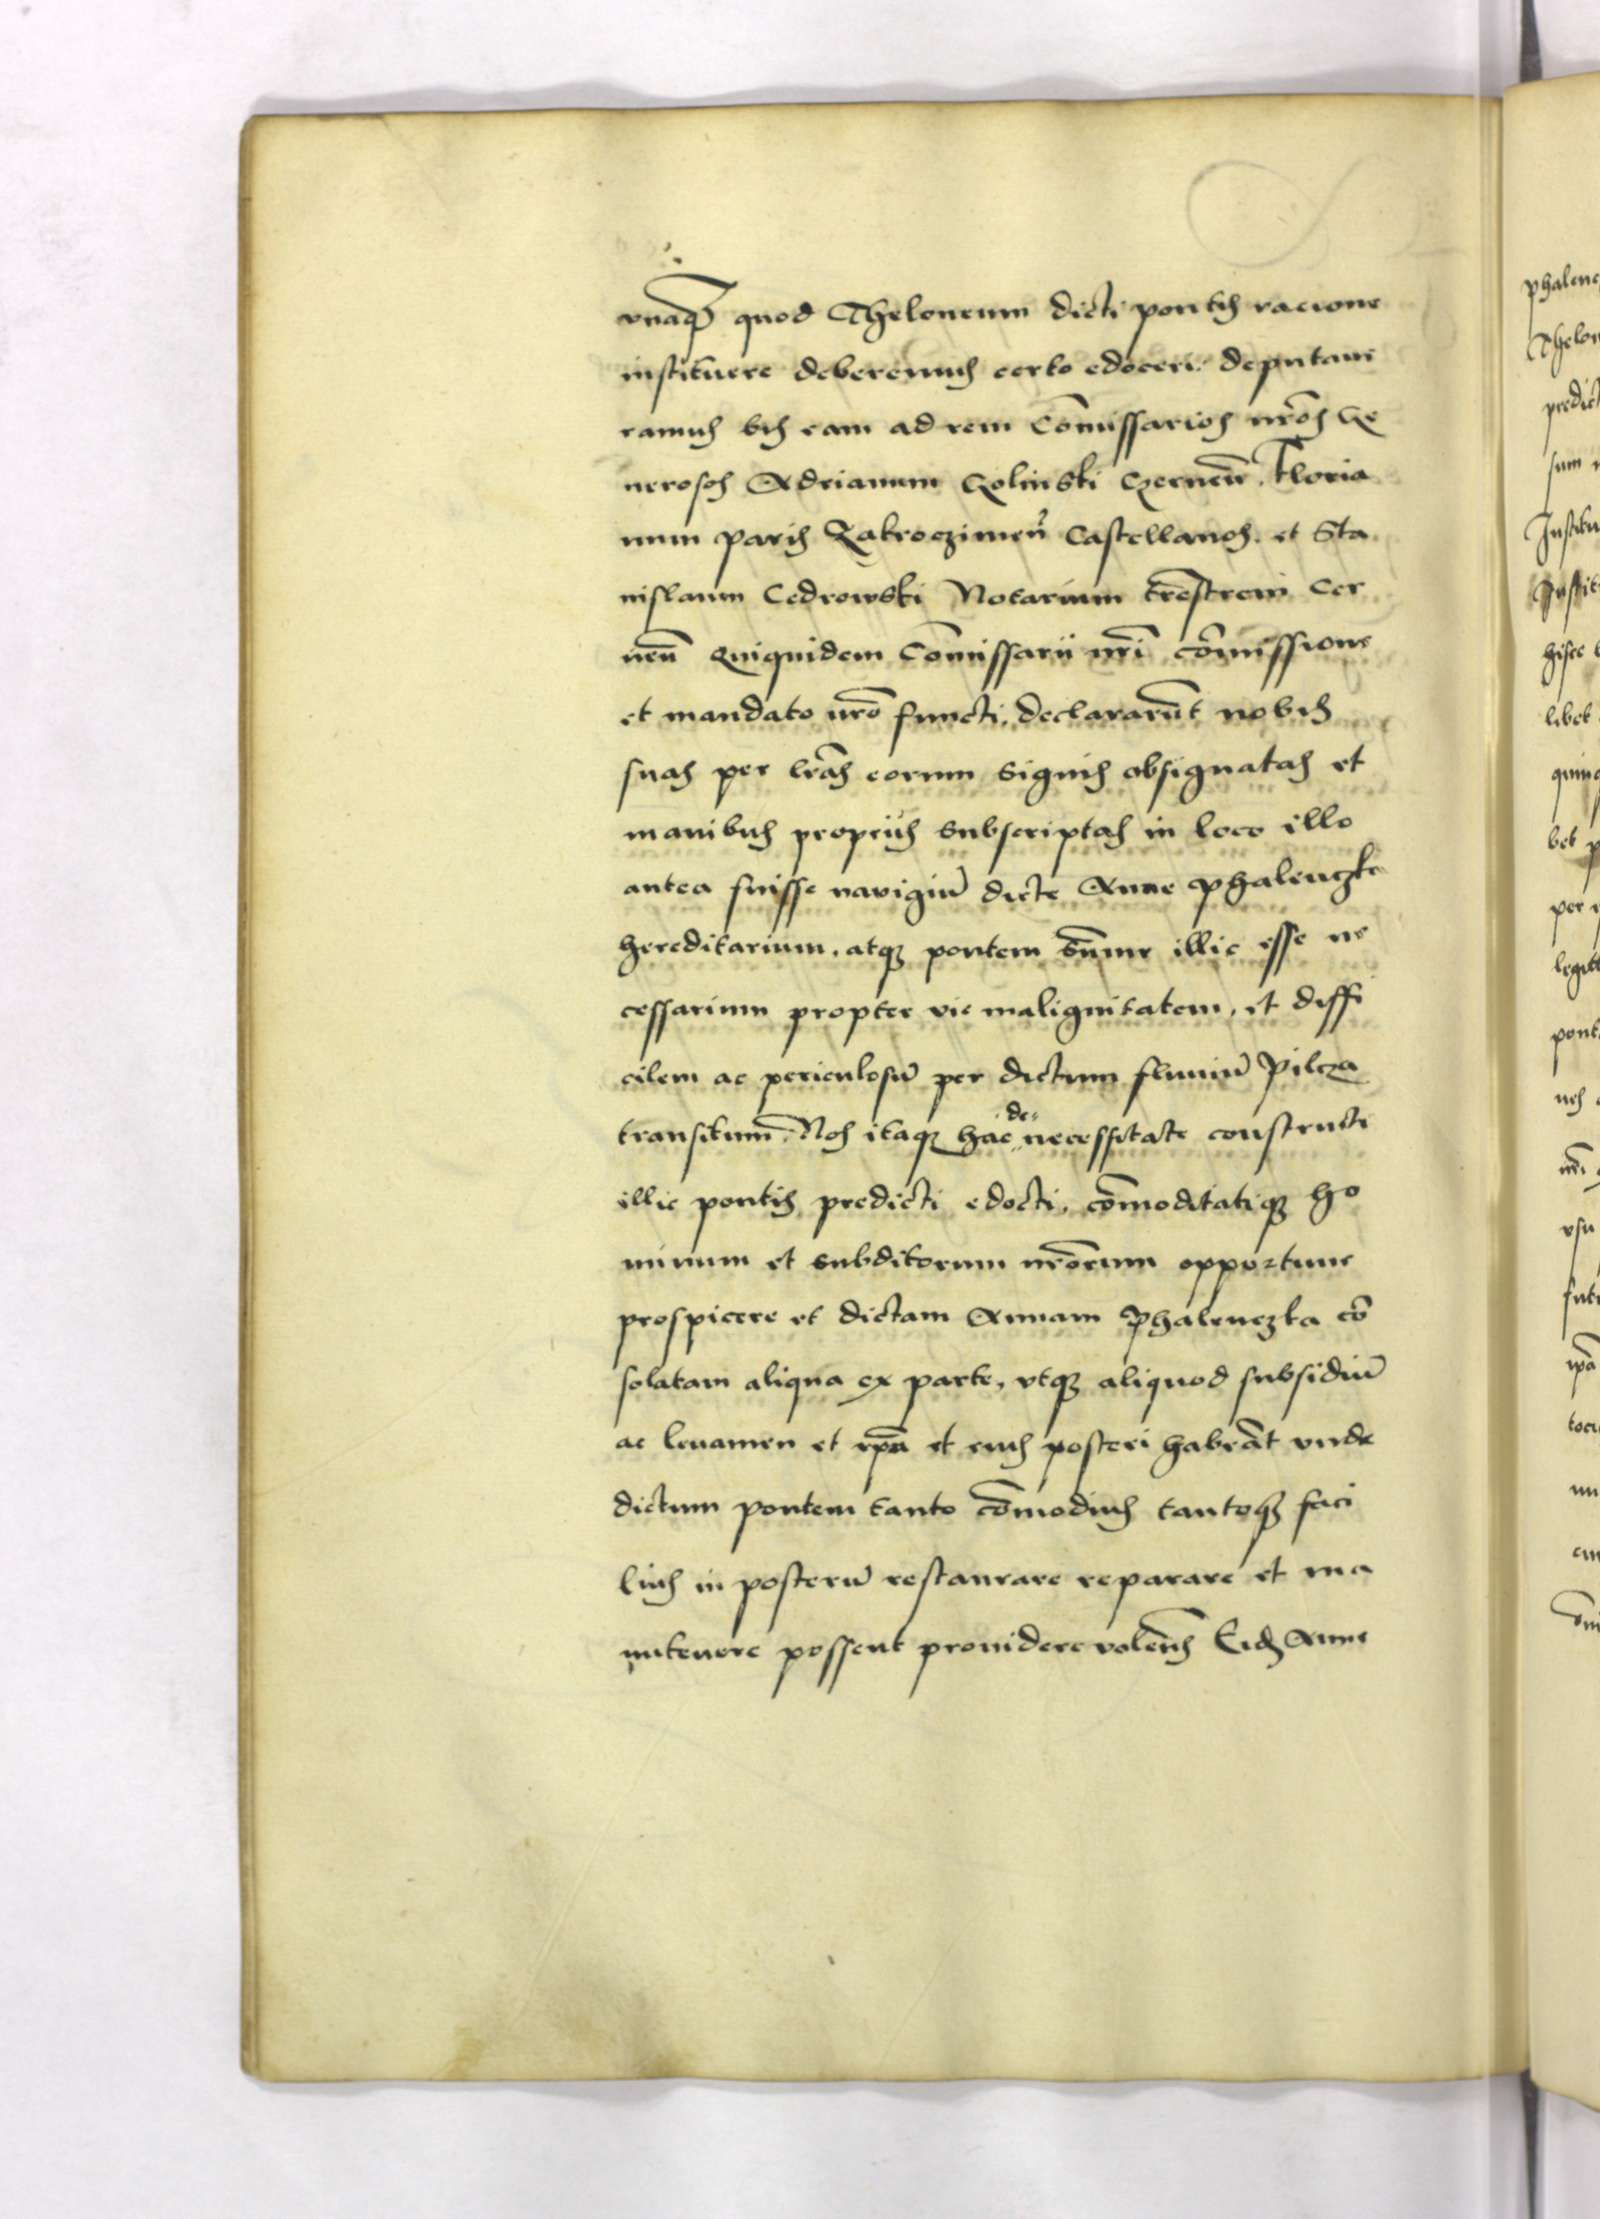 vnaq̄ quod Theloneum dicti pontis racione
instituere deberemus certo edoceri deputaui
ramus eam ad rem Com̄issarios nr̄os Ge
nerosos Adrianum Golinski Czernen̄. Floria
num Paris Zakroczimen̄ Castellanos. et Sta
nislaum Cedrowski Notarium tr̄estrem Cer
nen̄ Quiquidem Com̄issarii nr̄i com̄issione
et mandato nr̄o functi, declararūt nobis
suas per lr̄as eorum signis obsignatas et
manibus propriis subscriptas in loco illo
antea fuisse navigiū dicte Anne Phalenczke
hereditarium. atq3 pontem sum̄e illic esse ne
cessarium propter vie malignitatem, et diffi
cilem ac periculosū per dictum fluuiū Pilcza
transitum. Nos itaq3 hac de necessitate constructi
illic pontis predicti edocti, com̄oditatiq3 ho
minum et subditorum nr̄orum opportune
prospicere et dictam Annam Phalenczka cō
solatam aliqua ex parte, vtq3 aliquod subsidiū
ac leuamen et ip̄a et eius posteri habeāt vnde
dictum pontem tanto com̄odius tantoq3 faci
lius in posterū restaurare reparare et ma
nutenere possent prouidere volen̄s Eid3 Anne
phalenc
Thelon
predict
sum
Institu
Instit
hisce
libet
quinq
bet p
per
legitt
pont
nr̄i
vsu
ip̄a